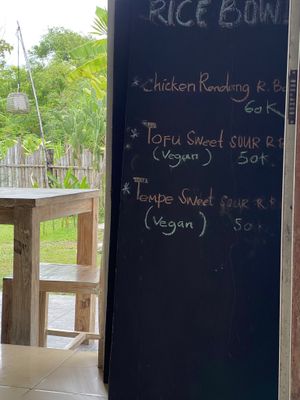 RICE BOWL
* Chicken Rendang R. B
60K
* TOFU Sweet SOUR R B
(Vegan) 50K.
* Tempe Sweet SOUR R B
(Vegan) 50